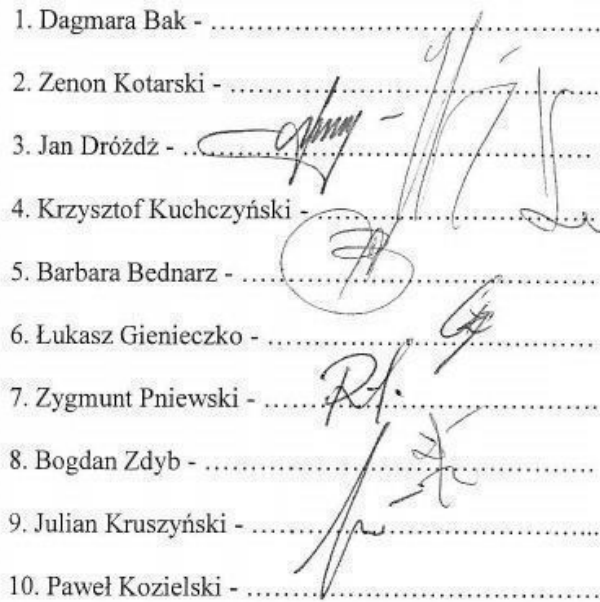 1. Dagmara Bak - ........................................
2. Zenon Kotarski - ........................................
3. Jan Dróżdż - ........................................
4. Krzysztof Kuchczyński - ........................................
5. Barbara Bednarz - ........................................
6. Łukasz Gienieczko - ........................................
7. Zygmunt Pniewski - ........................................
8. Bogdan Zdyb - ........................................
9. Julian Kruszyński - ........................................
10. Paweł Kozielski - ........................................